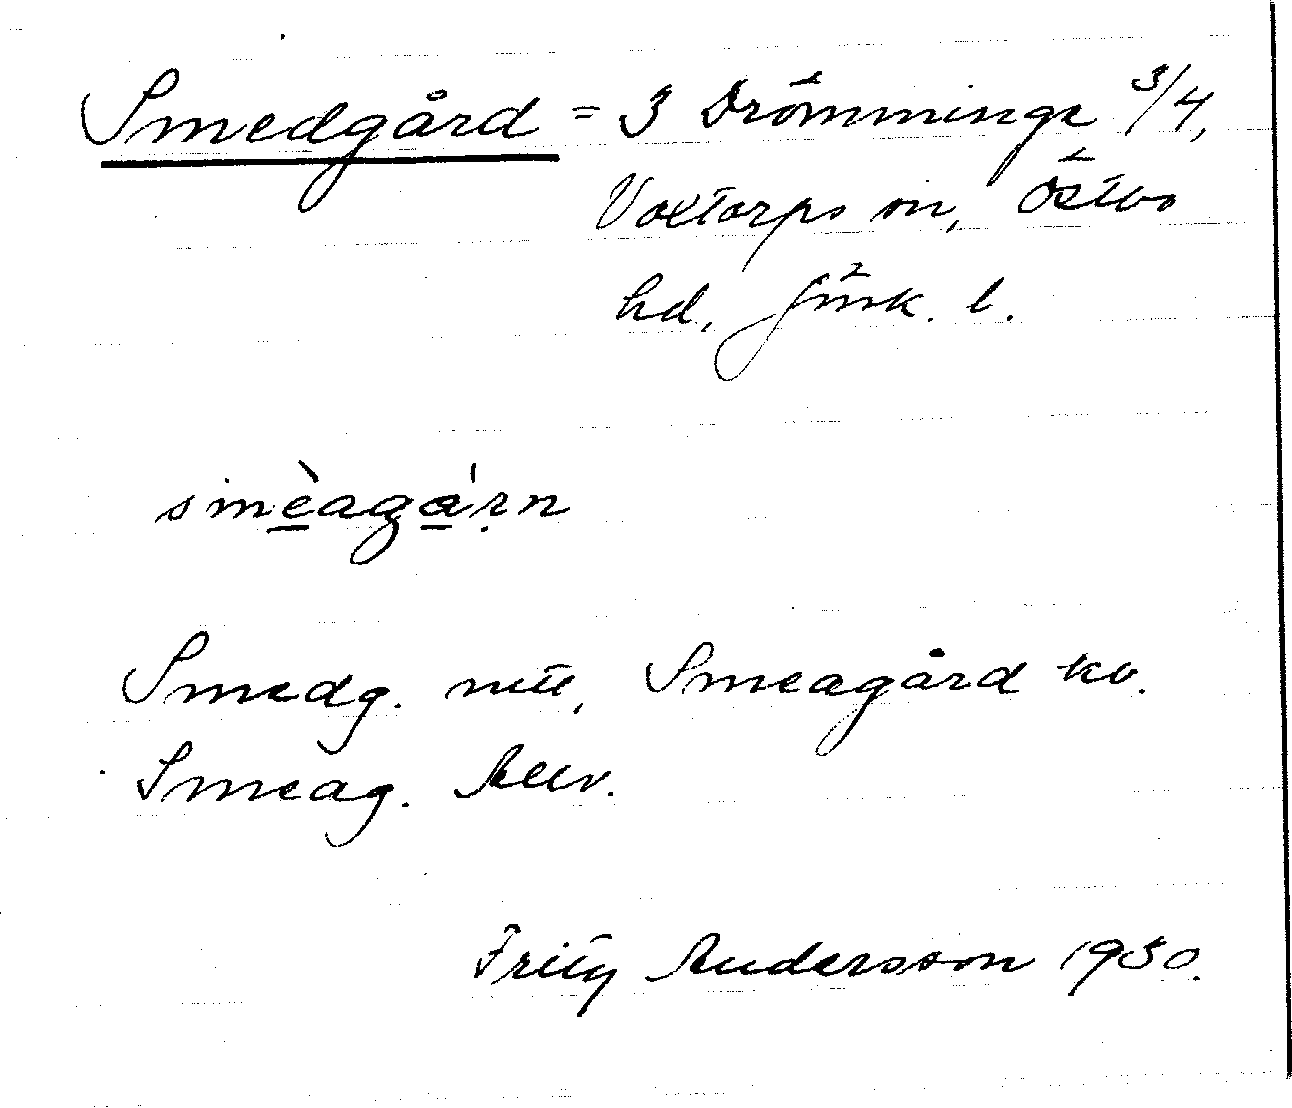 Smedgård = 3 Drömminge 3/4,
Voxtorps sn, Östbo
hd, Jönk. l.
smèagárn
Smedg. utt, Smeagård kv.
Smeag. Allv.
Fritz Andersson 1930.